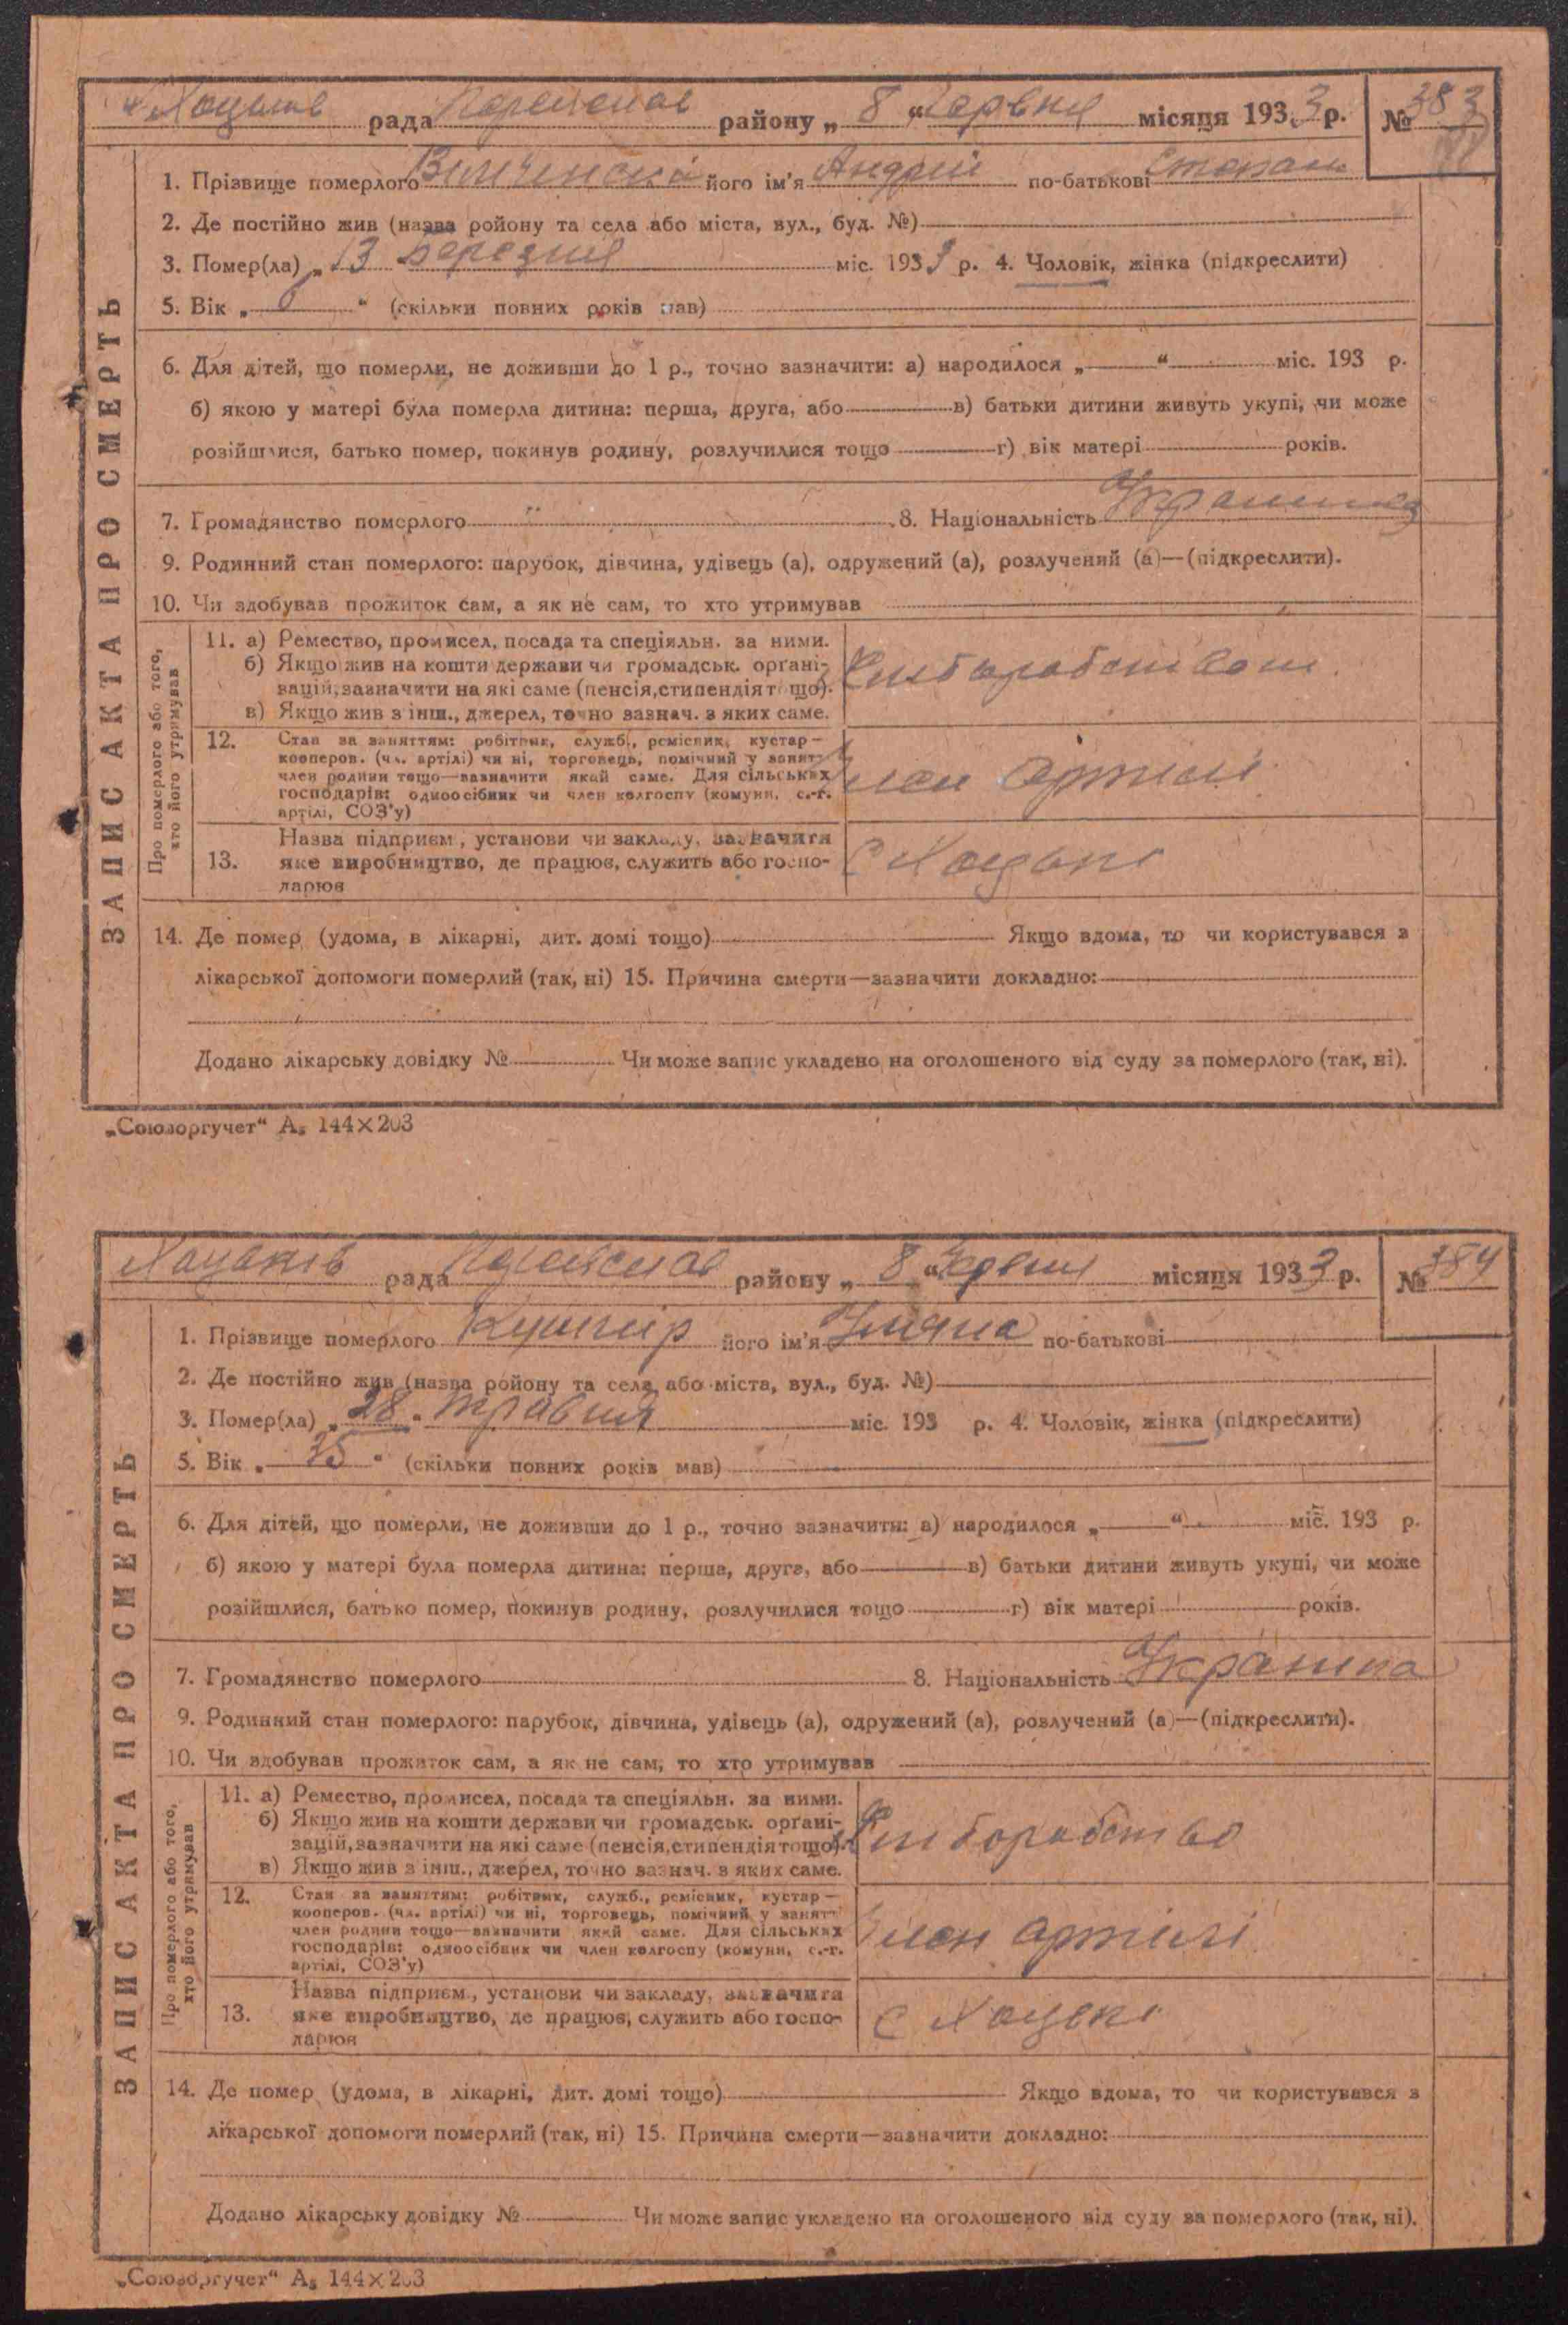 рада району „ 8 “ Червня місяця 1933 р. № 383
1. Прізвище померлого його ім'я Андрій по-батькові Степан
2. Де постійно жив (назва ройону та села або міста, вул., буд. №)
3. Помер(ла) „ 13 березня міс. 1933 р. 4. Чоловік, жінка (підкреслити)
5. Вік „ “ (скільки повних років мав)
6. Для дітей, що померли, не доживши до 1 р., точно зазначити: а) народилося „ “ міс. 193 р.
б) якою у матері була померла дитина: перша, друга, або в) батьки дитини живуть укупі, чи може
розійшлися, батько помер, покинув родину, розлучилися тощо г) вік матері років.
7. Громадянство померлого 8. Національність
9. Родинний стан померлого: парубок, дівчина, удівець (а), одружений (а), розлучений (а)—(підкреслити).
10. Чи здобував прожиток сам, а як не сам, то хто утримував
ЗАПИС АКТА ПРО СМЕРТЬ
Про померлого або того,
хто його утримував
11. а) Ремество, промисел, посада та спеціяльн. за ними.
б) Якщо жив на кошти держави чи громадськ. орґані-
зацій, зазначити на які саме (пенсія, стипендія тощо).
в) Якщо жив з інш., джерел, точно зазнач. з яких саме.
Хлиборобством
12. Стан за заняттям: робітник, служб., ремісник, кустар—
кооперов. (чл. артілі) чи ні, торговець, помічний у занят.
член родини тощо—вазначити який саме. Для сільських
господарів: одноосібник чи член колгоспу (комуни, с.-г.
артілі, СОЗ'у)
Член артилі
13. Назва підприєм., установи чи закладу, зазначити
яке виробництво, де працює, служить або госпо-
дарює
С Хоцьки
14. Де помер (удома, в лікарні, дит. домі тощо) Якщо вдома, то чи користувався з
лікарської допомоги померлий (так, ні) 15. Причина смерти—зазначити докладно:
Додано лікарську довідку № Чи може запис укладено на оголошеного від суду за померлого (так, ні).
„Союзоргучет“ А₅ 144×203
Хоцьків рада району „ 8 “ Червня місяця 1933 р. № 384
1. Прізвище померлого Кушнір його ім'я по-батькові
2. Де постійно жив (назва ройону та села або міста, вул., буд. №)
3. Помер(ла) „ 28 “ травня міс. 193 р. 4. Чоловік, жінка (підкреслити)
5. Вік „ 35 “ (скільки повних років мав)
6. Для дітей, що померли, не доживши до 1 р., точно зазначити: а) народилося „ “ міс. 193 р.
б) якою у матері була померла дитина: перша, друга, або в) батьки дитини живуть укупі, чи може
розійшлися, батько помер, покинув родину, розлучилися тощо г) вік матері років.
7. Громадянство померлого 8. Національність Українка
9. Родинний стан померлого: парубок, дівчина, удівець (а), одружений (а), розлучений (а)—(підкреслити).
10. Чи здобував прожиток сам, а як не сам, то хто утримував
ЗАПИС АКТА ПРО СМЕРТЬ
Про померлого або того,
хто його утримував
11. а) Ремество, промисел, посада та спеціяльн. за ними.
б) Якщо жив на кошти держави чи громадськ. орґані-
зацій, зазначити на які саме (пенсія, стипендія тощо).
в) Якщо жив з інш., джерел, точно зазнач. з яких саме.
Хлиборобство
12. Стан за заняттям: робітник, служб., ремісник, кустар—
кооперов. (чл. артілі) чи ні, торговець, помічний у занятті
член родини тощо—вазначити який саме. Для сільських
господарів: одноосібник чи член колгоспу (комуни, с.-г.
артілі, СОЗ'у)
Член артилі
13. Назва підприєм., установи чи закладу, зазначити
яке виробництво, де працює, служить або госпо-
дарює
С Хоцьки
14. Де помер (удома, в лікарні, дит. домі тощо) Якщо вдома, то чи користувався з
лікарської допомоги померлий (так, ні) 15. Причина смерти—зазначити докладно:
Додано лікарську довідку № Чи може запис укладено на оголошеного від суду за померлого (так, ні).
„Союзоргучет“ А₅ 144×203